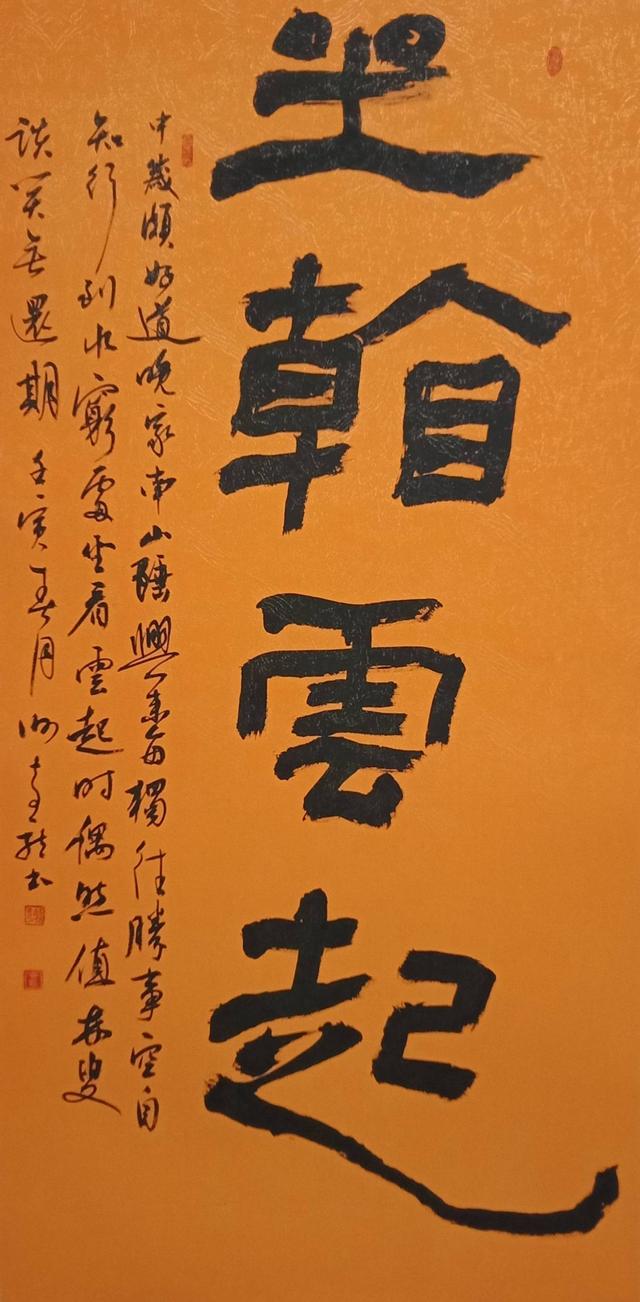 坐看雲起
中歲頗好道晚家南山陲興來每獨往勝事空自
知行到水窮處坐看雲起时偶然值林叟
談笑無還期壬寅春月書